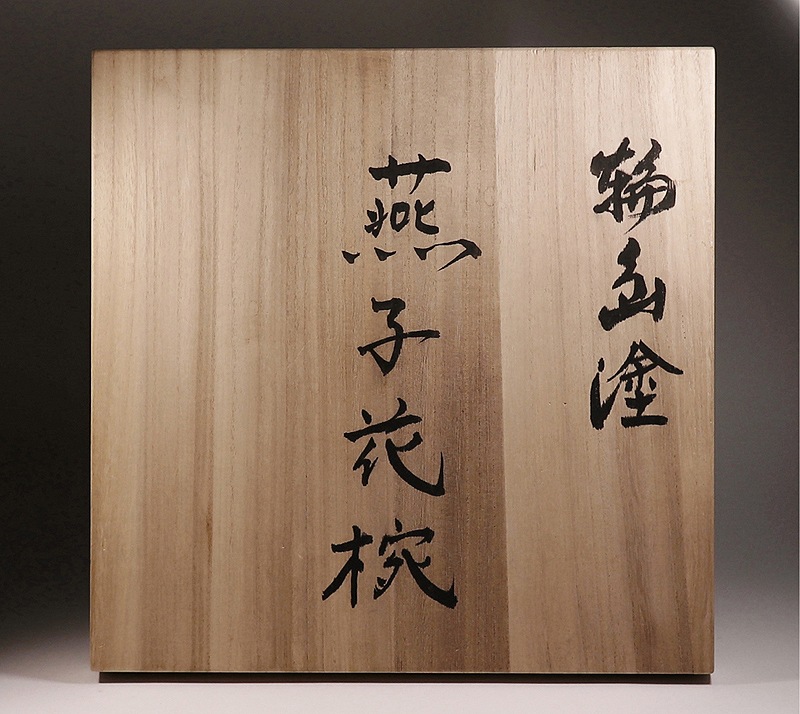 輪島塗
燕子花椀